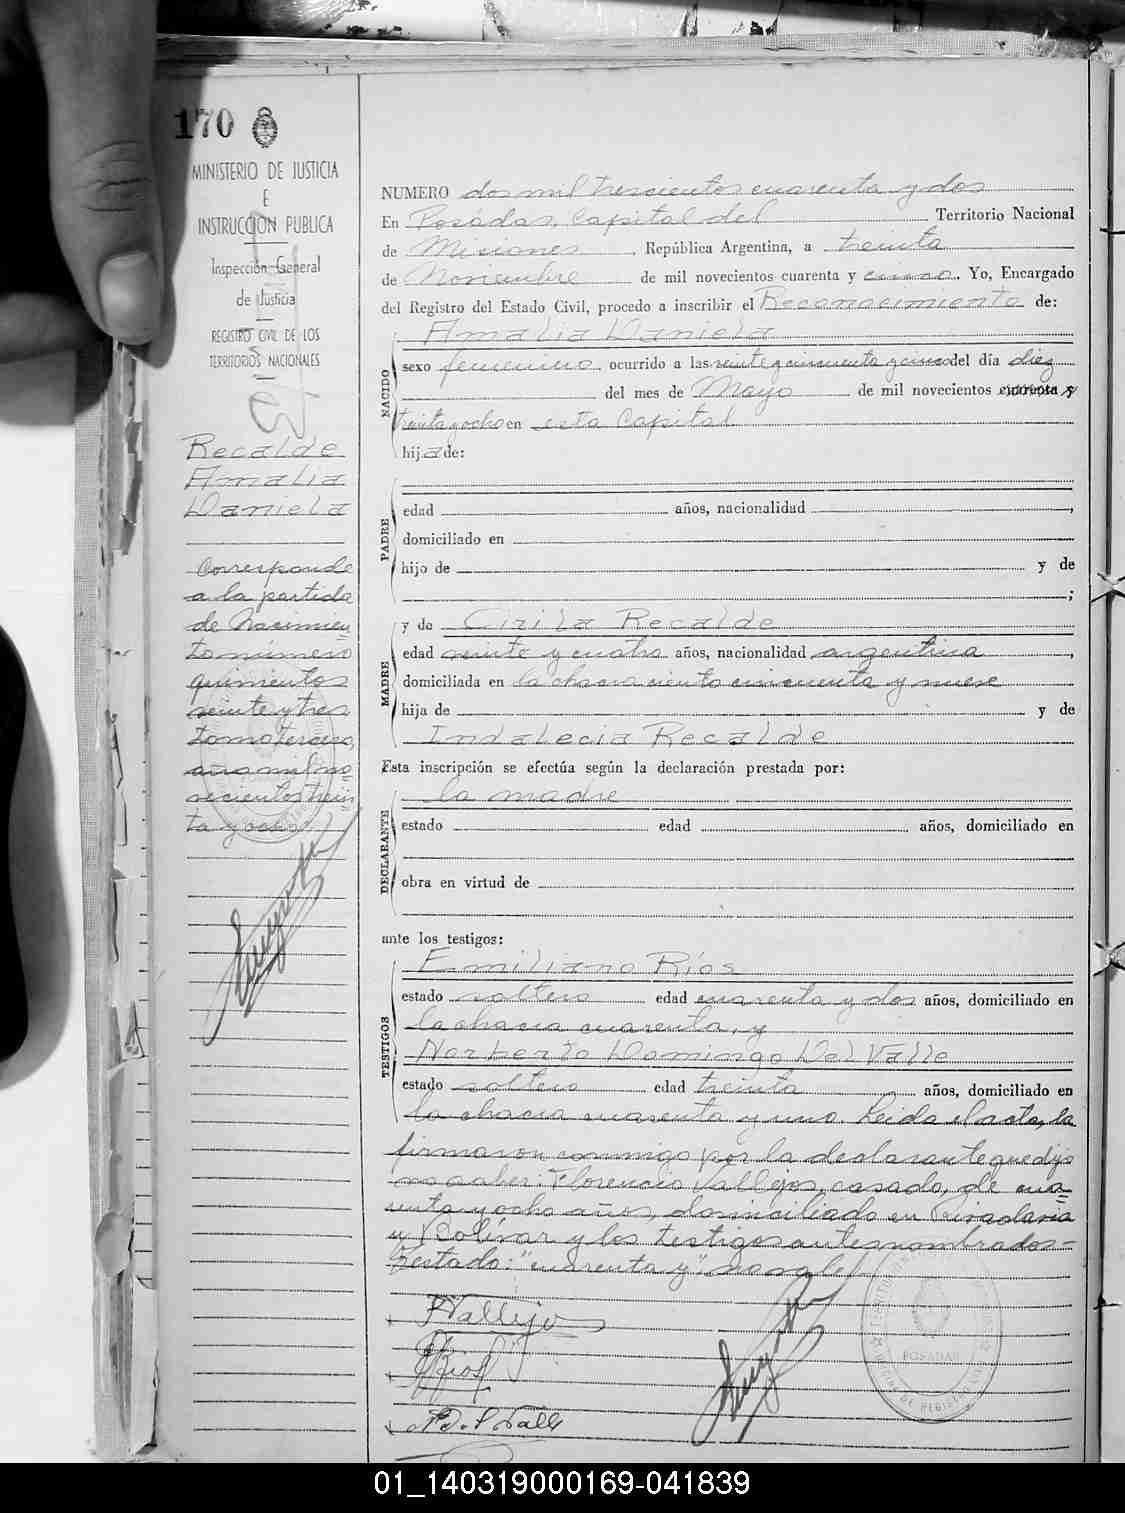 170
MINISTERIO DE JUSTICIA
E
INSTRUCCION PUBLICA
Inspección General
de Justicia
REGISTRO CIVIL DE LOS
TERRITORIOS NACIONALES
Recalde
Amalia
Daniela
Corresponde
a la partida
de Nacimien
to número
quinientos
veinte y tres
tomo tercero,
año mil no
vecientos trein
ta y ocho
NUMERO dos mil trescientos cuarenta y dos
En Posadas, Capital del Territorio Nacional
de Misiones, República Argentina, a treinta
de Noviembre de mil novecientos cuarenta y cinco. Yo, Encargado
del Registro del Estado Civil, procedo a inscribir el Reconocimiento de:
NACIDO
Amalia Daniela
sexo femenino, ocurrido a las veinte y cincuenta y cinco del día diez
del mes de Mayo de mil novecientos cuarenta y
treinta y ocho en esta Capital
hija de:
PADRE
edad años, nacionalidad ,
domiciliado en
hijo de y de
;
MADRE
y de Cirila Recalde
edad veinte y cuatro años, nacionalidad argentina,
domiciliada en la chacra ciento cincuenta y nueve
hija de y de
Indalecia Recalde
Esta inscripción se efectúa según la declaración prestada por:
DECLARANTE
la madre
estado edad años, domiciliado en
obra en virtud de
ante los testigos:
TESTIGOS
Emiliano Ríos
estado soltero edad cuarenta y dos años, domiciliado en
la chacra cuarenta, y
Norberto Domingo Del Valle
estado soltero edad treinta años, domiciliado en
la chacra cuarenta y uno. Leida el acta, la
firmaron conmigo por la declarante que dijo
no saber: Florencio Vallejos, casado, de cua
renta y ocho años, domiciliado en Rivadavia
y Bolívar y los testigos antes nombrados-
Testado: "cuarenta y" no vale
FVallejo
ERios
N D. d Valle
POSADAS
01_140319000169-041839